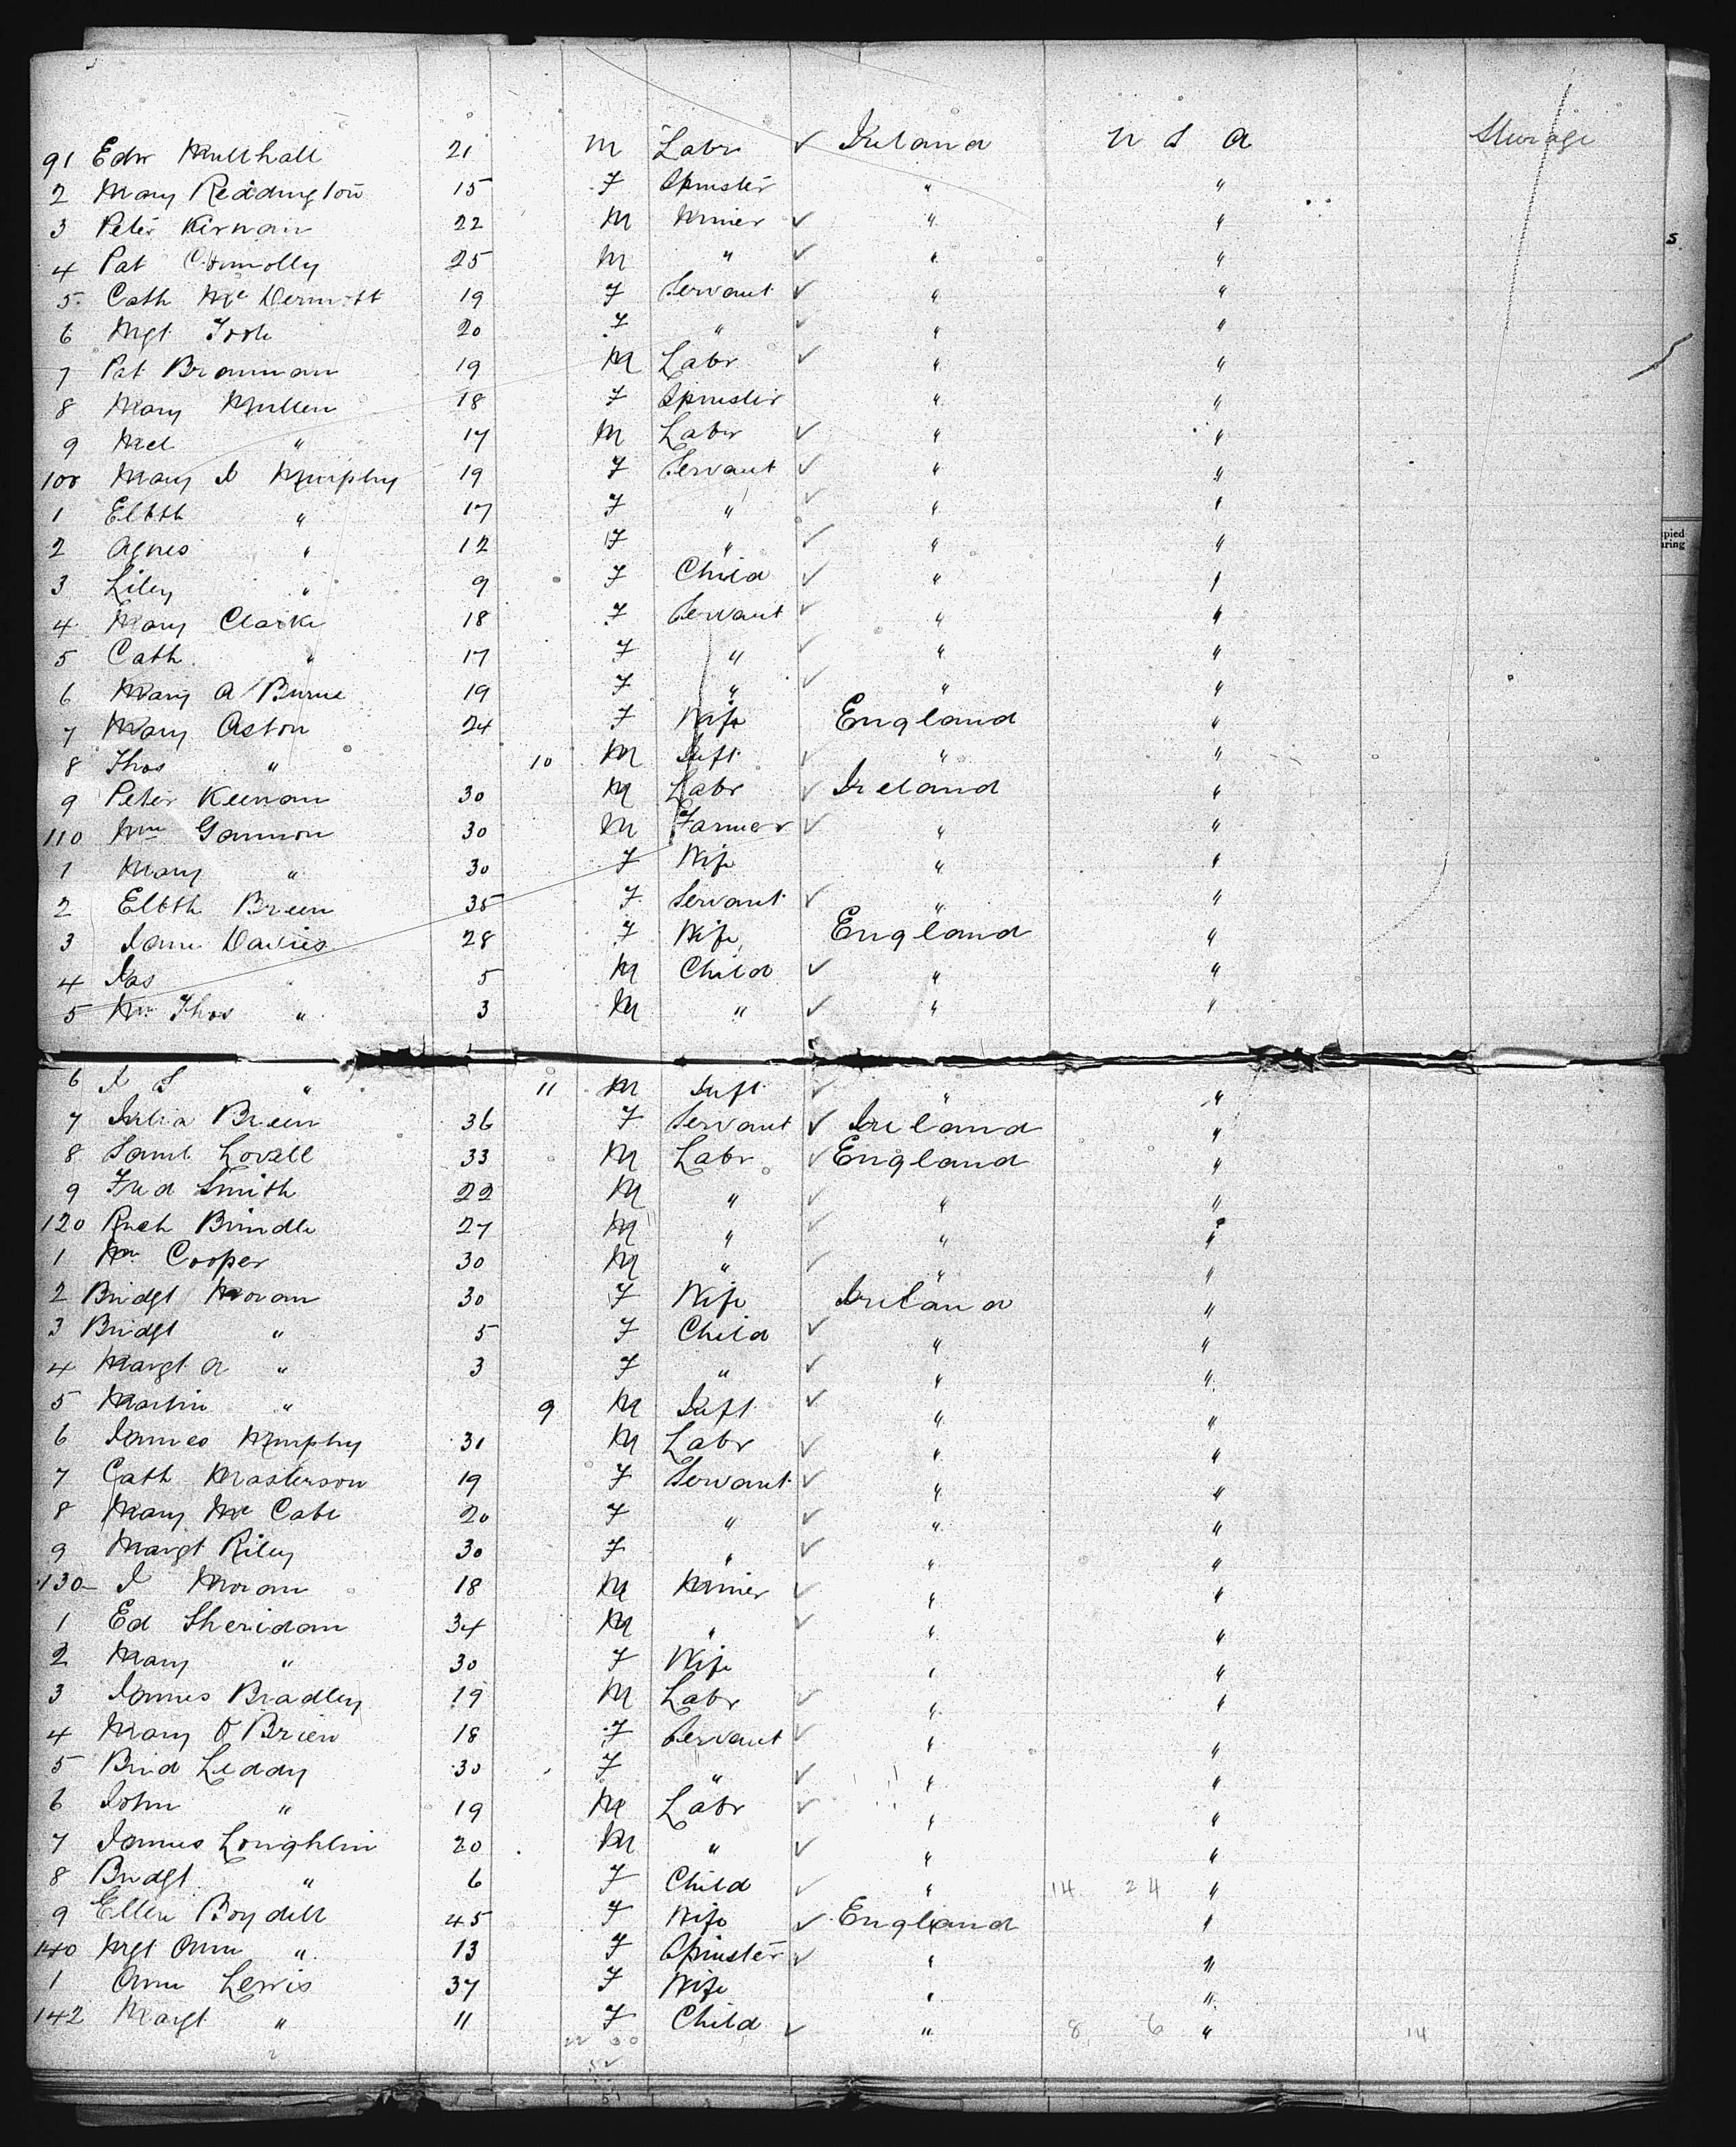 91 Edw Multhall 21 M Labr ✓ Ireland U S A Steerage
2 Mary Reddington 15 F Spinster " "
3 Peter Kirwan 22 M Miner ✓ " "
4 Pat Connolly 25 M " ✓ " "
5 Cath McDermott 19 F Servant ✓ " "
6 Mgt Toole 20 F " ✓ " "
7 Pat Brannan 19 M Labr ✓ " "
8 Mary Mullen 18 F Spinster " "
9 Mcl " 17 M Labr ✓ " "
100 Mary J Murphy 19 F Servant ✓ " "
1 Elbth " 17 F " ✓ " "
2 Agnes " 12 F " ✓ " "
3 Liley " 9 F Child ✓ " "
4 Mary Clarke 18 F Servant ✓ " "
5 Cath " 17 F " ✓ " "
6 Mary A Burne 19 F " ✓ " "
7 Mary Aston 24 F Wife England "
8 Thos " 10 M Inft ✓ " "
9 Peter Keenan 30 M Labr ✓ Ireland "
110 Wm Gannon 30 M Farmer ✓ " "
1 Mary " 30 F Wife " "
2 Elbth Breen 35 F Servant ✓ " "
3 Jane Davies 28 F Wife England "
4 Jas 5 M Child ✓ " "
5 Wm Thos " 3 M " ✓ " "
6 J S " 11 M Inft ✓ " "
7 Julia Breen 36 F Servant ✓ Ireland "
8 Saml Lovell 33 M Labr ✓ England "
9 Fred Smith 22 M " ✓ " "
120 Rich Brindle 27 M " ✓ " "
1 Wm Cooper 30 M " ✓ " "
2 Bridgt Moran 30 F Wife Ireland "
3 Bridgt " 5 F Child ✓ " "
4 Margt A " 3 F " ✓ " "
5 Martin " 9 M Inft ✓ " "
6 James Murphy 31 M Labr ✓ " "
7 Cath Masterson 19 F Servant ✓ " "
8 Mary McCabe 20 F " ✓ " "
9 Margt Riley 30 F " ✓ " "
130 J Moran 18 M Miner ✓ " "
1 Ed Sheridan 34 M " ✓ " "
2 Mary " 30 F Wife " "
3 James Bradley 19 M Labr ✓ " "
4 Mary O Brien 18 F Servant ✓ " "
5 Brid Leddy 30 F " ✓ " "
6 John " 19 M Labr ✓ " "
7 James Loughlin 20 M " ✓ " "
8 Bridgt " 6 F Child ✓ " 14 24 "
9 Ellen Boydell 45 F Wife ✓ England "
140 Mgt Ann " 13 F Spinster ✓ " "
1 Ann Lewis 37 F Wife " "
142 Margt " 11 F Child ✓ " 8 6 " 14
22 30
52